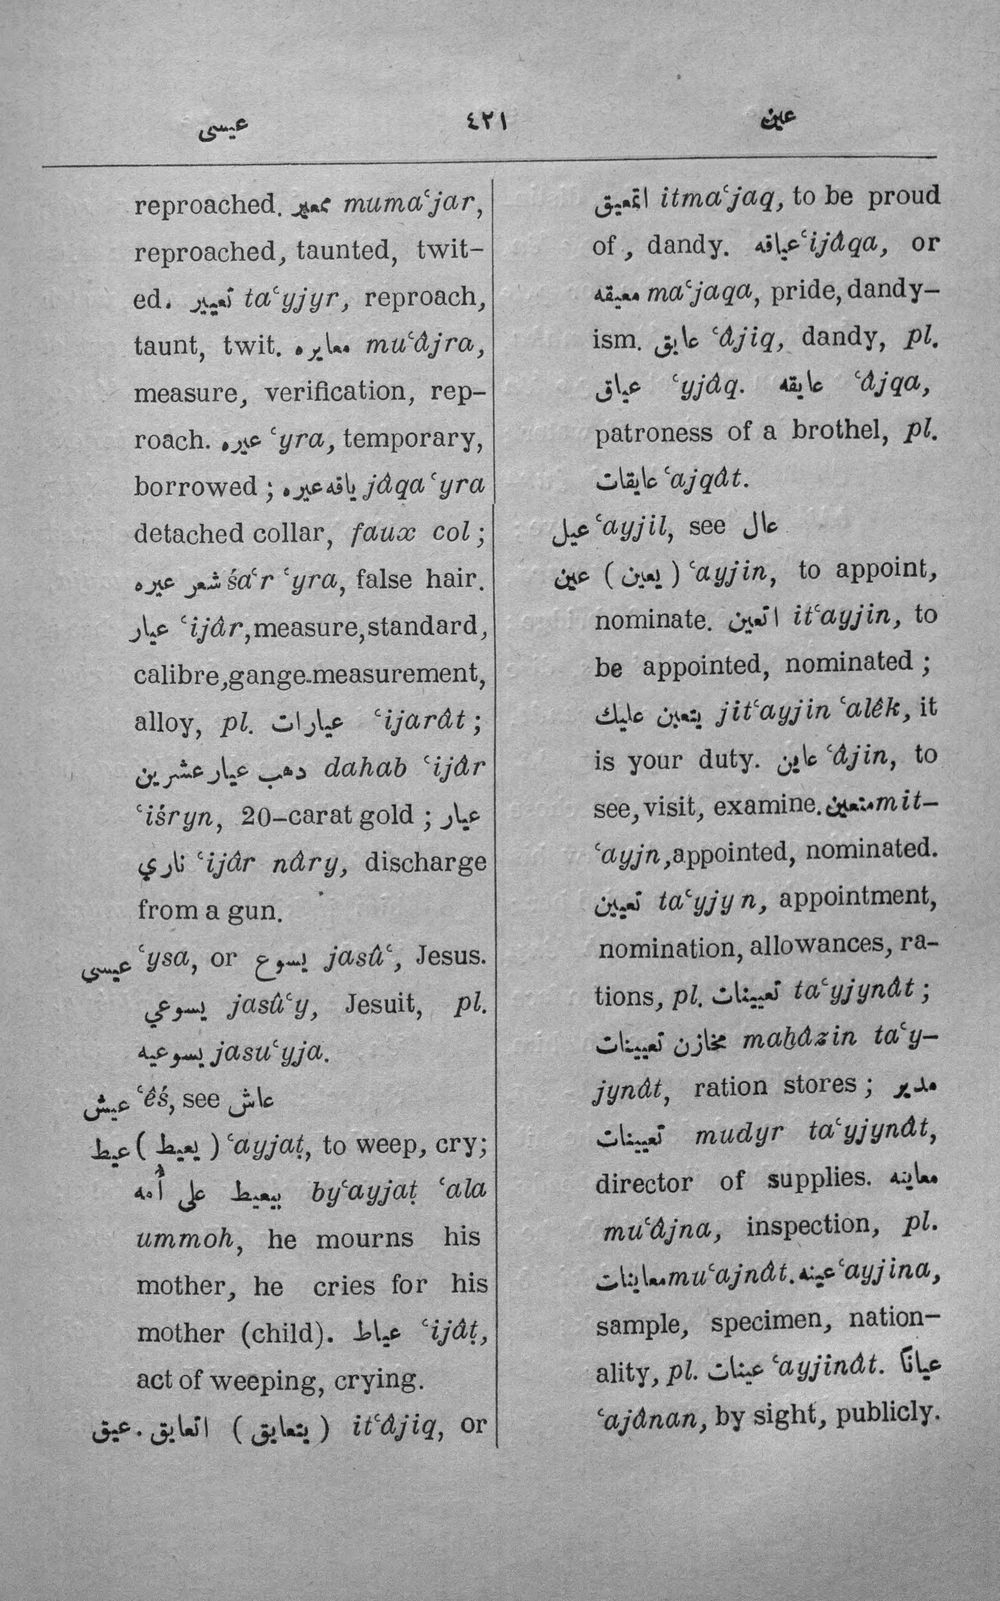 عيسى ٤٢١ عين
reproached. ممعير mumaʿjar,
reproached, taunted, twit-
ed. تعيير taʿyjyr, reproach,
taunt, twit. معايره muʿâjra,
measure, verification, rep-
roach. عيره ʿyra, temporary,
borrowed ; ياقه عيره jâqa ʿyra
detached collar, faux col ;
شعر عيره śaʿr ʿyra, false hair.
عيار ʿijâr, measure, standard,
calibre, gange-measurement,
alloy, pl. عيارات ʿijarât ;
دهب عيار عشرين dahab ʿijâr
ʿiśryn, 20-carat gold ; عيار
ناري ʿijâr nâry, discharge
from a gun.
عيسى ʿysa, or يسوع jasûʿ, Jesus.
يسوعي jasûʿy, Jesuit, pl.
يسوعيه jasuʿyja.
عيش ʿêś, see عاش
عيط ( يعيط ) ʿayjaṭ, to weep, cry;
بيعيط على أُمه byʿayjaṭ ʿala
ummoh, he mourns his
mother, he cries for his
mother (child). عياط ʿijâṭ,
act of weeping, crying.
عيق. اتعايق ( يتعايق ) itʿâjiq, or
اتمعيق itmaʿjaq, to be proud
of, dandy. عياقه ʿijâqa, or
معيقه maʿjaqa, pride, dandy-
ism. عايق ʿâjiq, dandy, pl.
عياق ʿyjâq. عايقه ʿâjqa,
patroness of a brothel, pl.
عايقات ʿajqât.
عيل ʿayjil, see عال
عين ( يعين ) ʿayjin, to appoint,
nominate. اتعين itʿayjin, to
be appointed, nominated ;
يتعين عليك jitʿayjin ʿalêk, it
is your duty. عاين ʿâjin, to
see, visit, examine. متعين mit-
ʿayjn, appointed, nominated.
تعيين taʿyjyn, appointment,
nomination, allowances, ra-
tions, pl. تعيينات taʿyjynât ;
مخازن تعيينات maḫâzin taʿy-
jynât, ration stores ; مدير
تعيينات mudyr taʿyjynât,
director of supplies. معاينه
muʿâjna, inspection, pl.
معاينات muʿajnât. عينه ʿayjina,
sample, specimen, nation-
ality, pl. عينات ʿayjinât. عياناً
ʿajânan, by sight, publicly.